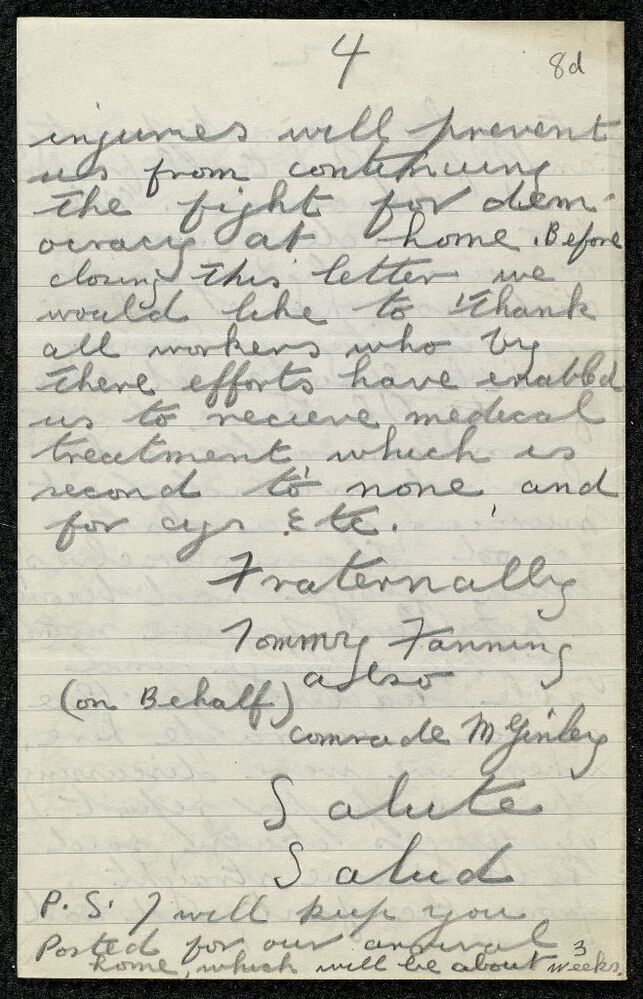 4
8d
injures will prevent
us from continuing
the fight for dem-
ocracy at home. Before
closing this letter we
would like to thank
all workers who by
there efforts have enabled
us to recieve medical
treatment which is
second to none and
for cigs Etc.
Fraternally
Tommy Fanning
also
(on Behalf)
comrade McGinley
Salute
Salud
P.S. I will keep you
Posted for our arrival
home, which will be about 3 weeks.